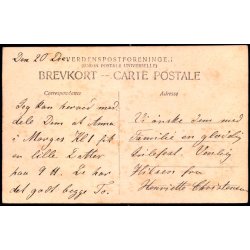 Den 20 Dec
VERDENSPOSTFORENINGEN
(UNION POSTALE UNIVERSELLE)
BREVKORT — CARTE POSTALE
Correspondance
Adresse
Jeg kan herved med
dele Dem at Anna
i Morges Kl 1 fik
en lille Datter
paa 9 ℔. De har
det godt begge To.
Vi ønske Dem med
Familie en glædelig
Julefest. Venlig
Hilsen fra
Henriette Christensen